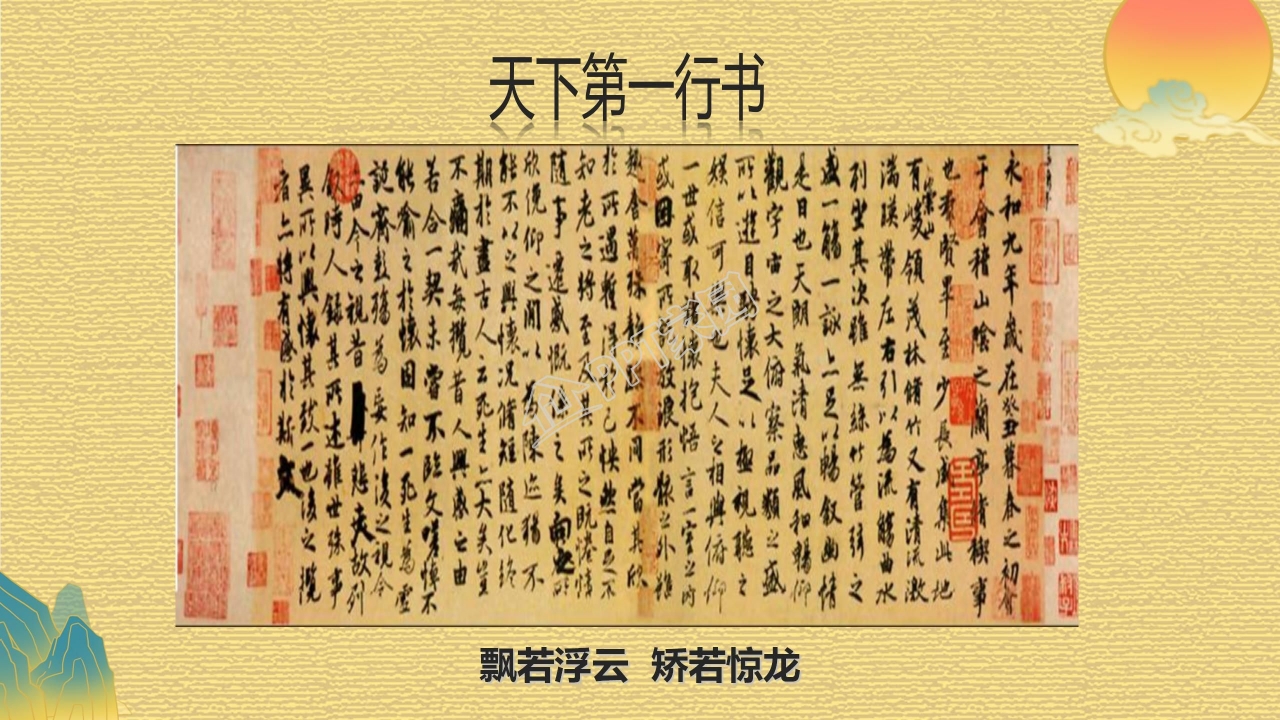 天下第一行书
永和九年歲在癸丑暮春之初會
于會稽山陰之蘭亭脩稧事
也群賢畢至少長咸集此地
有崇山峻領茂林脩竹又有清流激
湍暎帶左右引以為流觴曲水
列坐其次雖無絲竹管弦之
盛一觴一詠亦足以暢叙幽情
是日也天朗氣清惠風和暢仰
觀宇宙之大俯察品類之盛
所以遊目騁懷足以極視聽之
娛信可樂也夫人之相與俯仰
一世或取諸懷抱悟言一室之內
或因寄所託放浪形骸之外雖
趣舍萬殊靜躁不同當其欣
於所遇蹔得於己怏然自足不
知老之將至及其所之既惓情
隨事遷感慨係之矣向之所
欣俛仰之閒以為陳迹猶不
能不以之興懷況脩短隨化終
期於盡古人云死生亦大矣豈
不痛哉每攬昔人興感之由
若合一契未嘗不臨文嗟悼不
能喻之於懷固知一死生為虛
誕齊彭殤為妄作後之視今
亦由今之視昔悲夫故列
叙時人錄其所述雖世殊事
異所以興懷其致一也後之攬
者亦將有感於斯文
飘若浮云 矫若惊龙